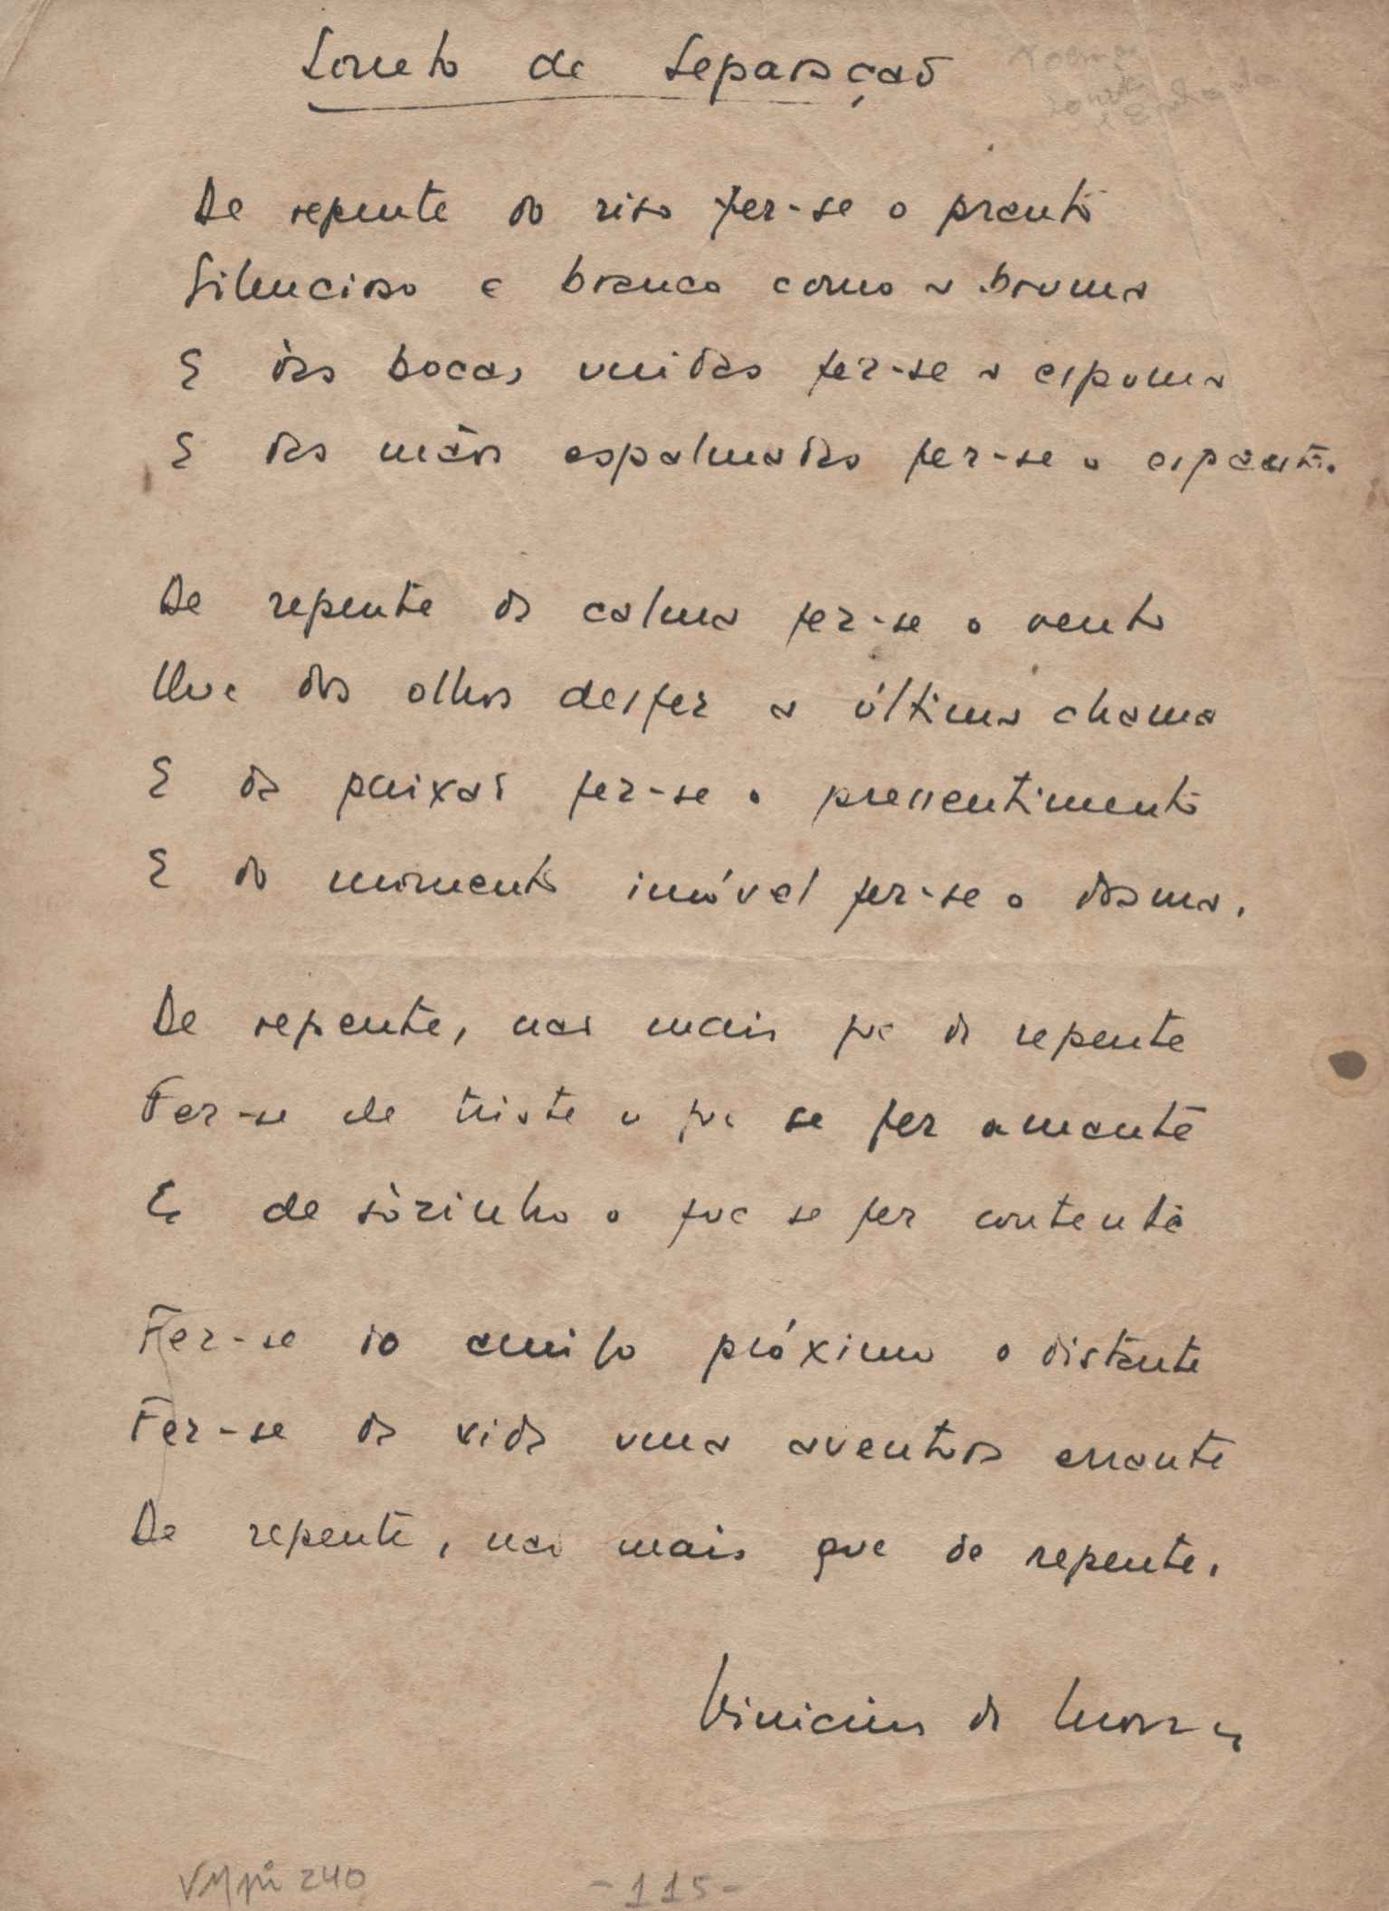 Soneto de Separação
De repente do riso fez-se o pranto
Silencioso e branco como a bruma
E das bocas unidas fez-se a espuma
E das mãos espalmadas fez-se o espanto.
De repente da calma fez-se o vento
Que dos olhos desfez a última chama
E da paixão fez-se o pressentimento
E do momento imóvel fez-se o drama.
De repente, não mais que de repente
Fez-se de triste o que se fez amante
E de sòzinho o que se fez contente
Fez-se do amigo próximo o distante
Fez-se da vida uma aventura errante
De repente, não mais que de repente.
Vinicius de Moraes
VMpi 240
-115-